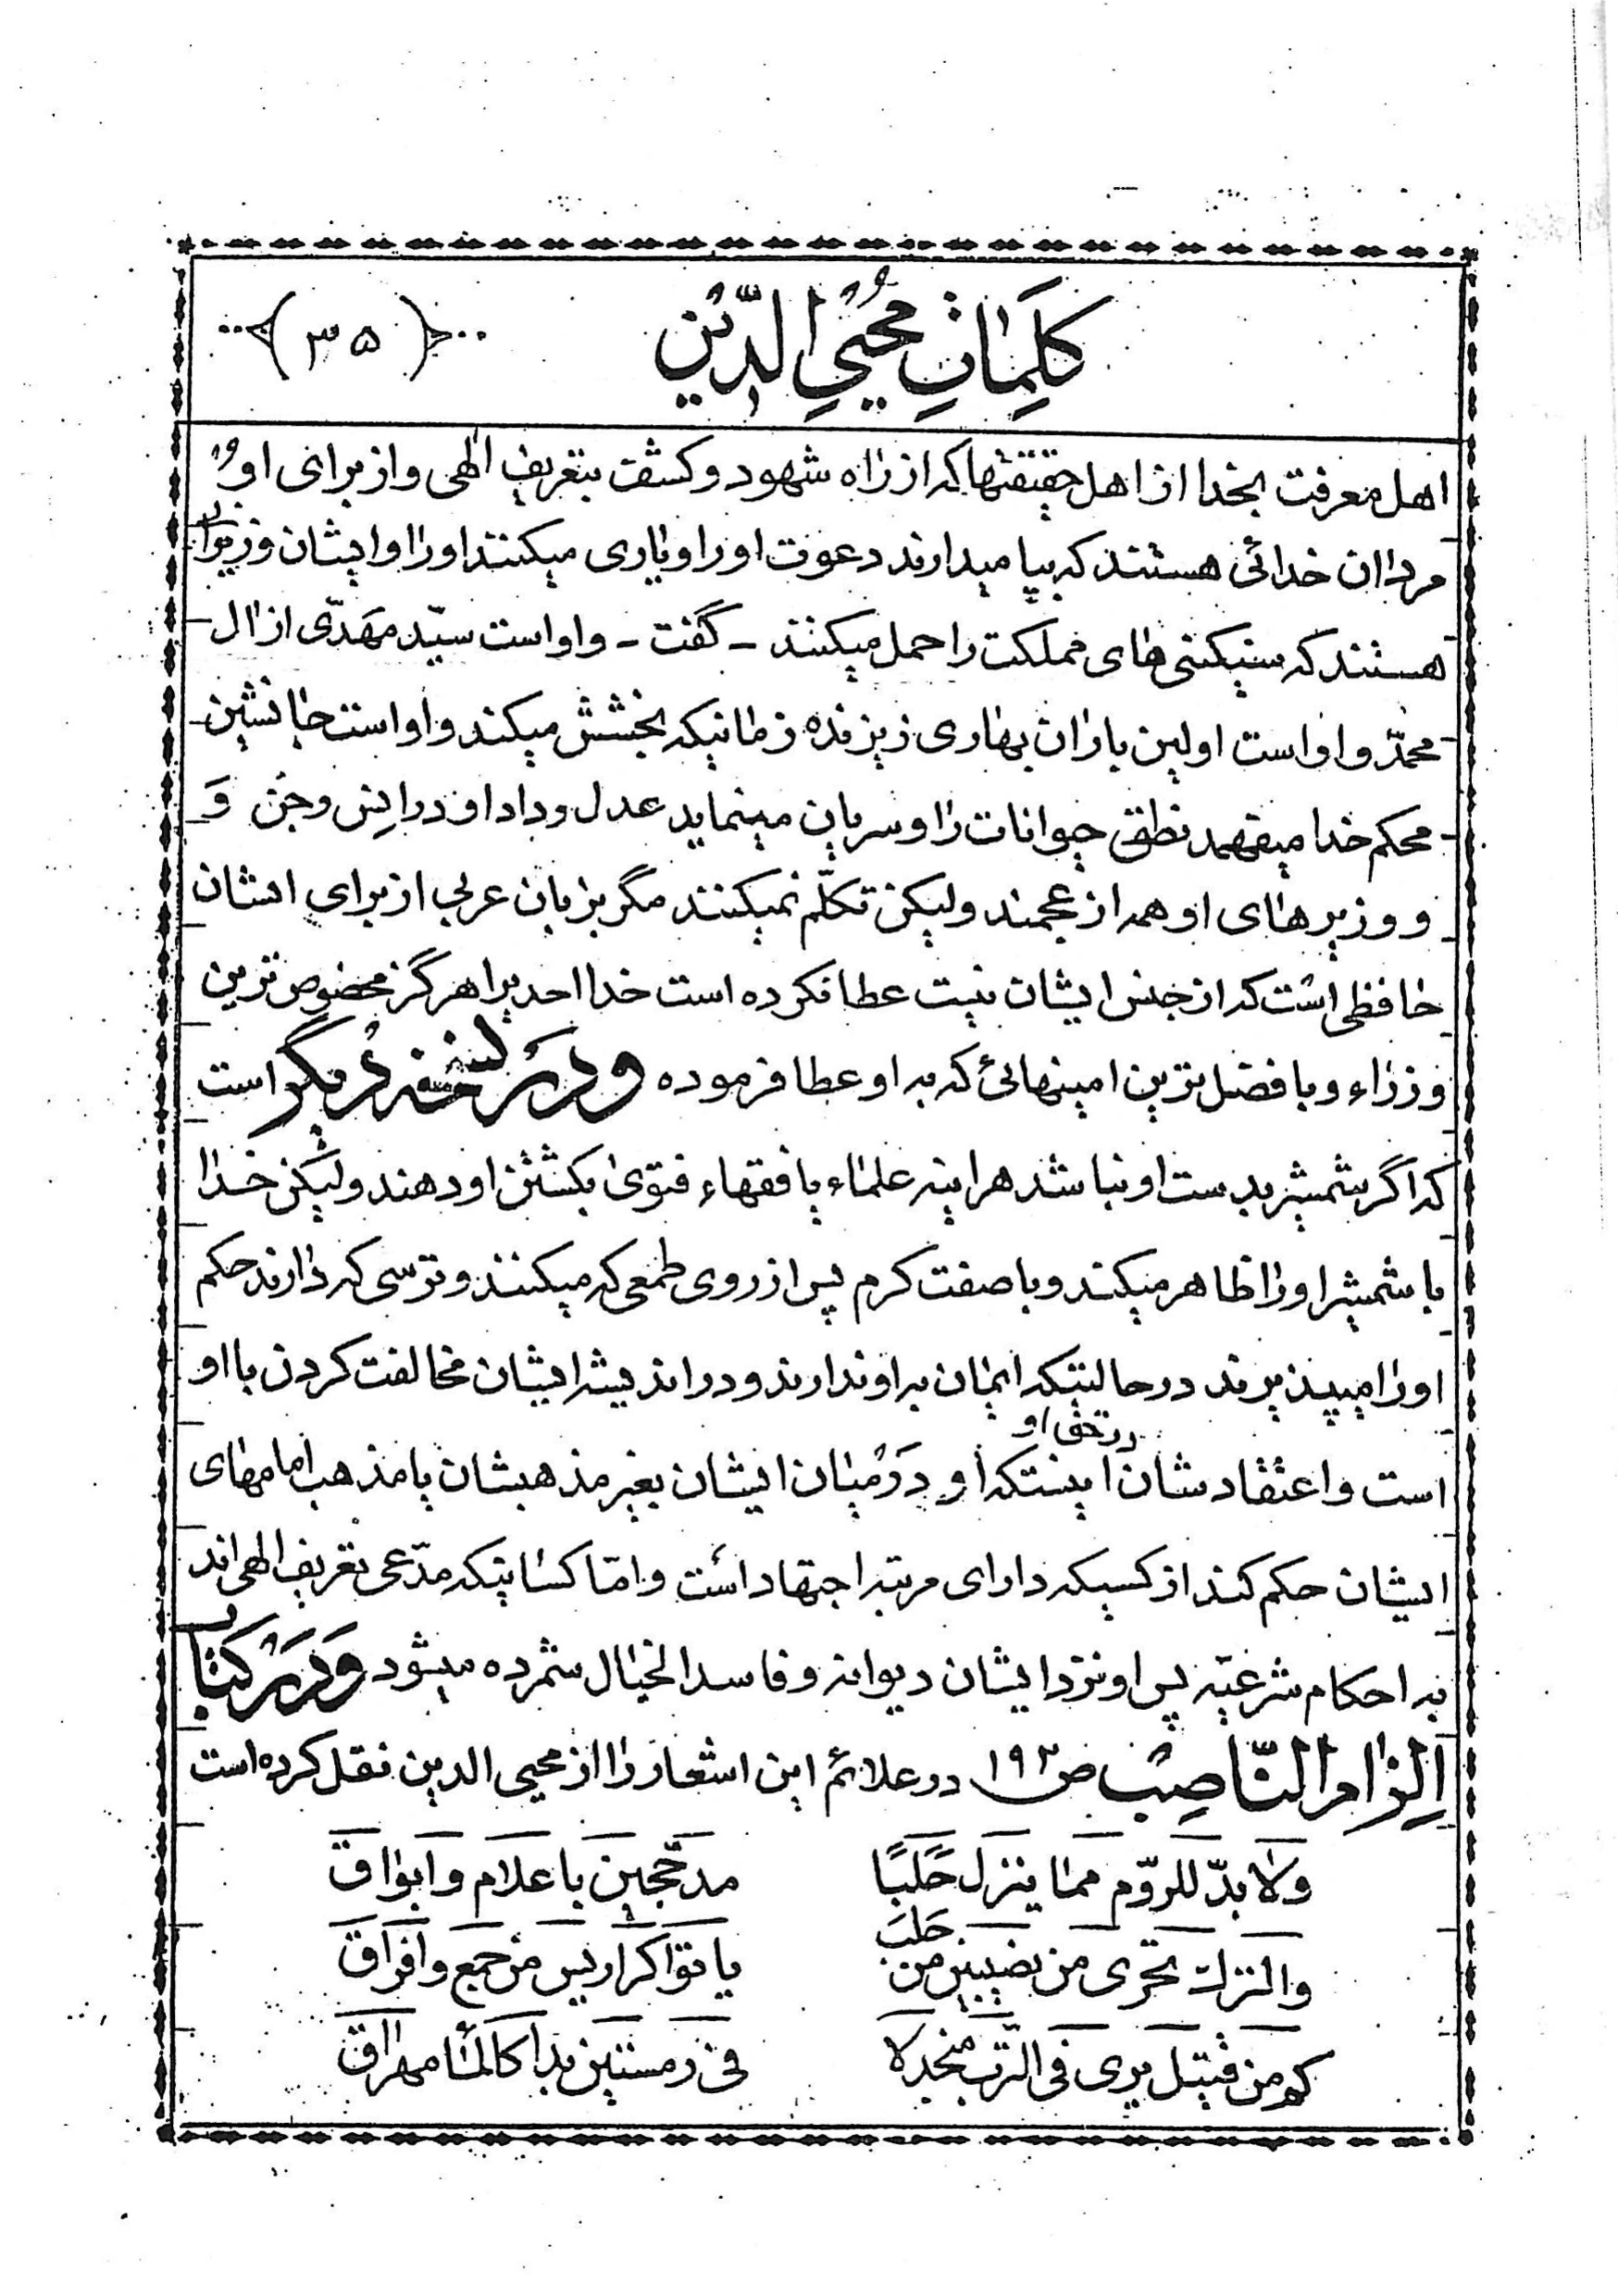 کلمات محیی الدین
(۳۵)
اهل معرفت بخدا از اهل حقیقتها که از راه شهود و کشف بتعریف الهی و از برای او
مردان خدائی هستند که بپا میدارند دعوت او را و یاری میکنند او را و ایشان وزیران
هستند که سنگینی های مملکت را حمل میکنند ـ گفت ـ و او است سیّد مهدّی از ال
محمّد و او است اولین باران بهاری ریزنده زمانیکه بخشش میکند و او است جانشین
محکم خدا میفهمد نطق حیوانات را و سریان مینماید عدل و داد او در انِس و جنّ وَ
و وزیرهای او همه از عجمند ولیکن تکلّم نمیکنند مگر بزبان عربی از برای ایشان
حافظی است که از جنس ایشان نیست عطا نکرده است خدا احدیرا هرگز مخصوص ترین
وزراء و با فضل ترین امینهائی که به او عطا فرموده و در نسخه دیگر است
که اگر شمشیر بدست او نباشد هراینه علماء یا فقهاء فتوی بکشتن او دهند ولیکن خدا
با شمشیر او را ظاهر میکند و با صفت کرم پس از روی طمعی که میکنند و ترسی که دارند حکم
او را میپذیرند در حالتیکه ایمان به او ندارند و در اندیشه ایشان مخالفت کردن با او
در حق او
است و اعتقادشان اینستکه او در میان ایشان بغیر مذهبشان یا مذهب امامهای
ایشان حکم کند از کسیکه دارای مرتبه اجتهاد است و امّا کسانیکه مدّعی تعریف الهی اند
به احکام شرعیّه پس او نزد ایشان دیوانه و فاسد الخیال شمرده میشود وَ دَر کتاب
اِلزام النّاصِب ص ۱۹۲ در علائم این اشعار را از محیی الدین نقل کرده است
ولا بدّ للروّم ممّا ینزل حَلَبًا مدجّجین باعلام وابواق
والترك تحری من نصیبین من حَلَبَ یاتوا کرادیس من جمع وافراق
کم من قتیل یری فی التّرب منجدلا فی رمستین بدا کالماء مهراق